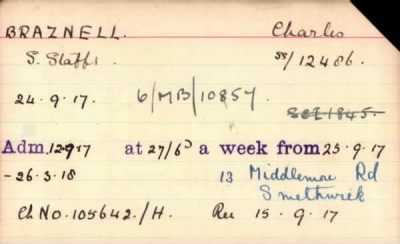 BRAZNELL. Charles
S. Staffs. SS/12486.
24.9.17. 6/MB/10857.
SCI 1845.
Adm. 12.9.17 at 27/6D a week from 25.9.17
-26.3.18 13 Middlemore Rd
Smethwick
Cl No. 105642./H. Rec 15.9.17